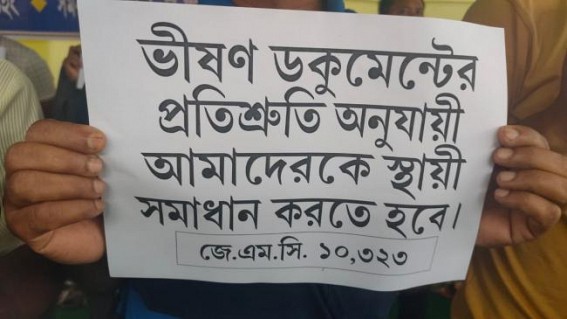 ভীষণ ডকুমেন্টের
প্রতিশ্রুতি অনুযায়ী
আমাদেরকে স্থায়ী
সমাধান করতে হবে।
জে.এম.সি. ১০,৩২৩